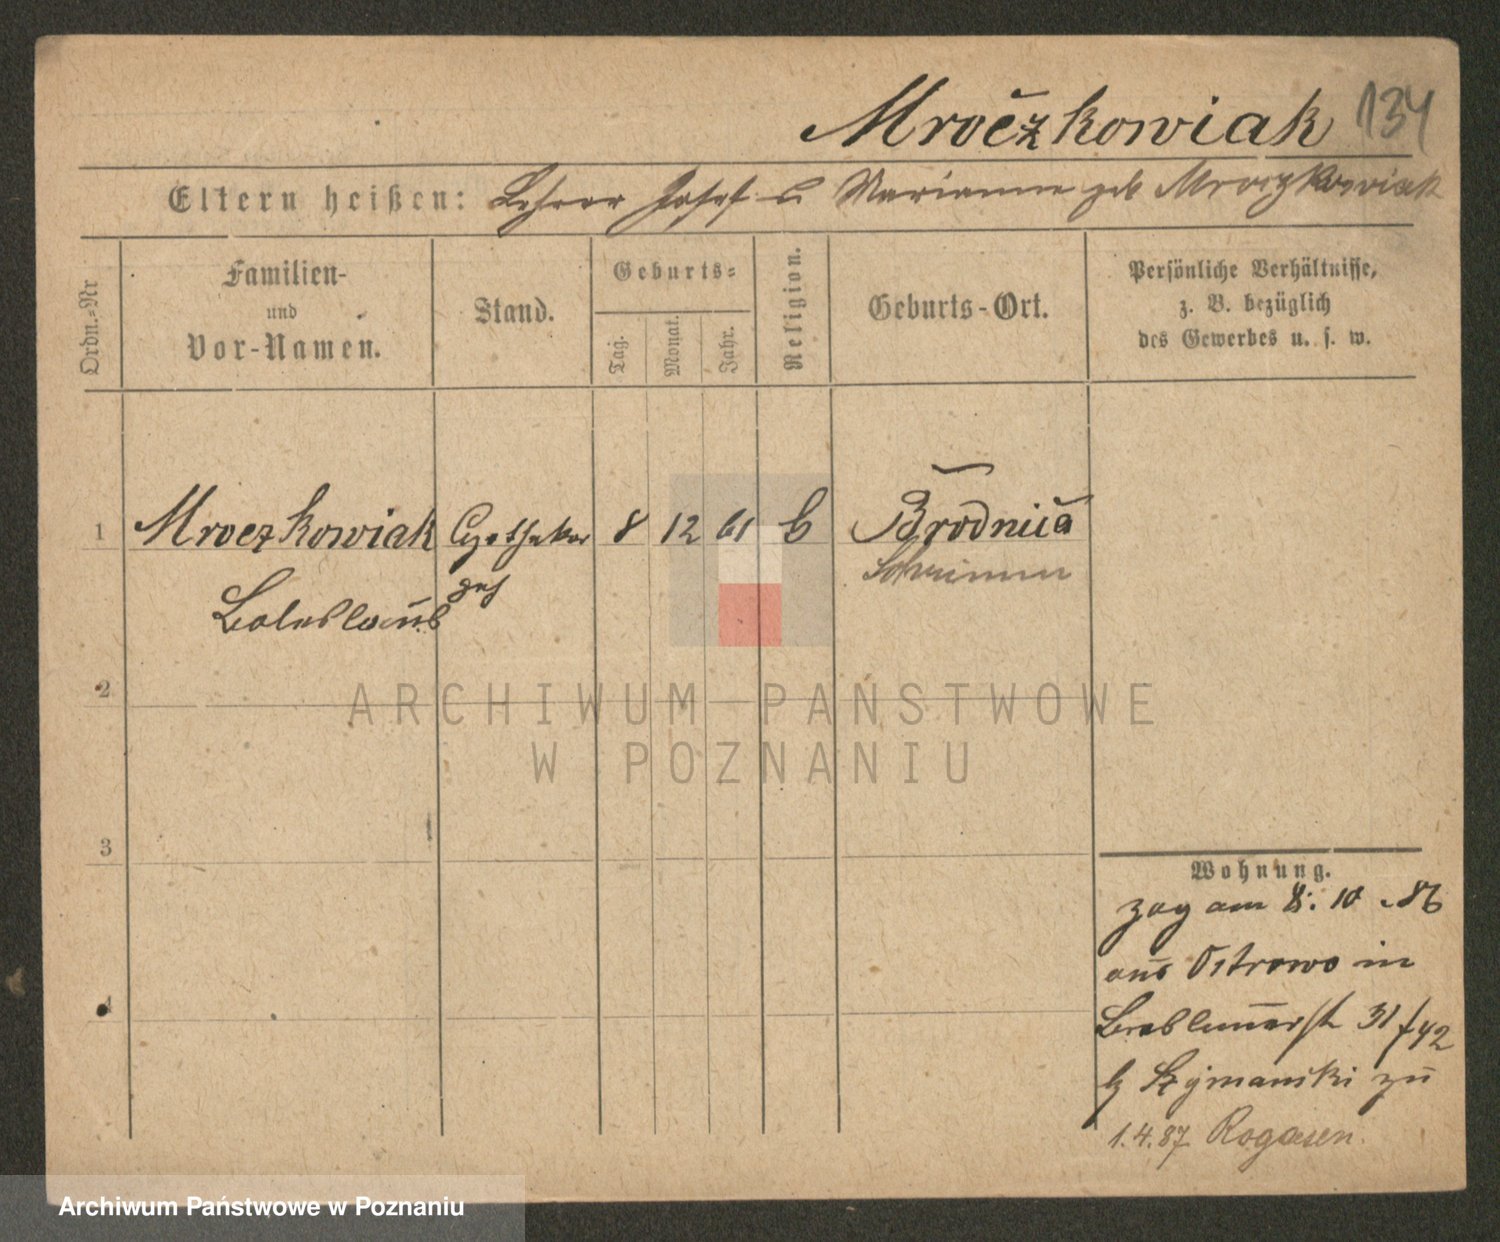 Mroczkowiak 134
Eltern heißen: Lehrer Josef u Marianne geb Mroczkowiak
Ordn.=Nr
Familien-
und
Vor-Namen.
Stand.
Geburts=
Tag.
Monat.
Jahr.
Religion.
Geburts-Ort.
Persönliche Verhältnisse,
z. B. bezüglich
des Gewerbes u. s. w.
1 Mroczkowiak Apotheker 8 12 61 Brodnica
Boleslaus geh Schrimm
2
ARCHIWUM PAŃSTWOWE
W POZNANIU
3
Wohnung.
zog am 8. 10. 86
aus Ostrowo in
Breslauerstr 31/42
b Szymanski zu
4
1.4.87 Rogasen.
Archiwum Państwowe w Poznaniu